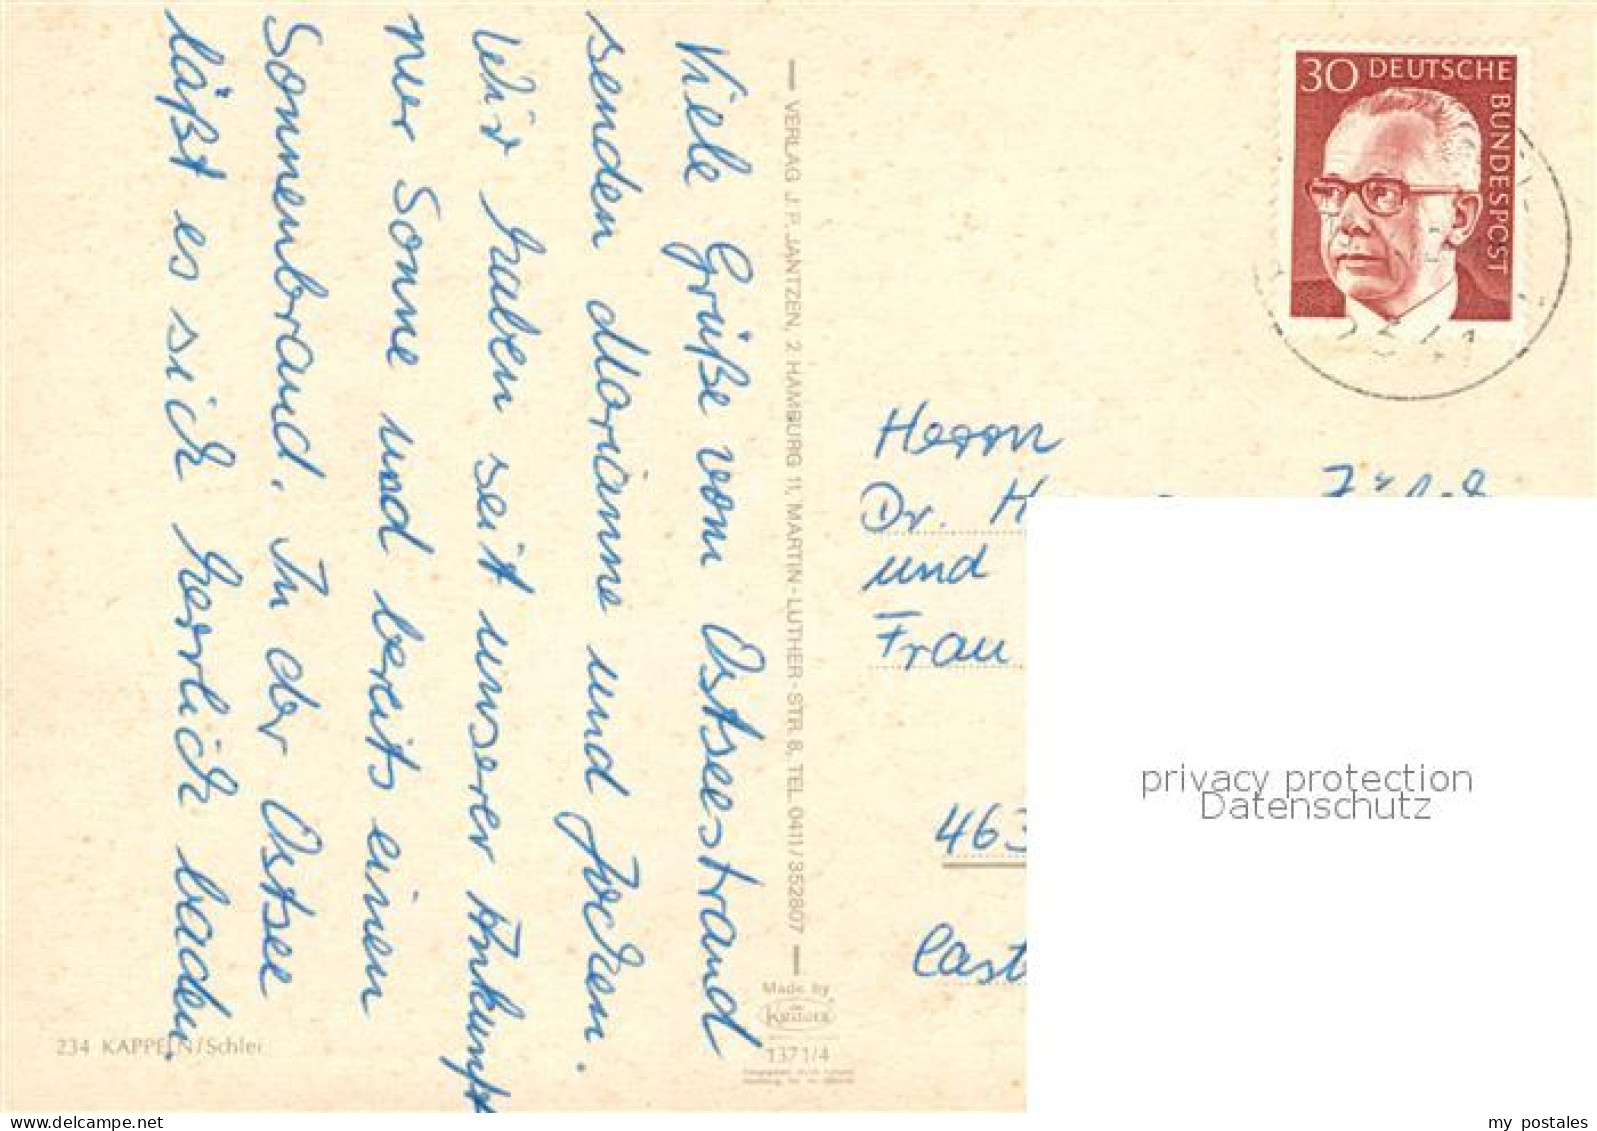 Viele Grüße vom Ostseestrand
senden Marianne und Jochen.
Wir haben seit unserer Ankunft
nur Sonne und bereits einen
Sonnenbrand. In der Ostsee
läßt es sich herrlich baden.
VERLAG J. P. JANTZEN, 2 HAMBURG 11, MARTIN-LUTHER-STR. 8, TEL. 0411/352807
Made by
Krüger
1371/4
234 KAPPELN/Schlei
30 DEUTSCHE
BUNDESPOST
Herrn
Dr. H
und
Frau
463
Cast
privacy protection
Datenschutz
my postales